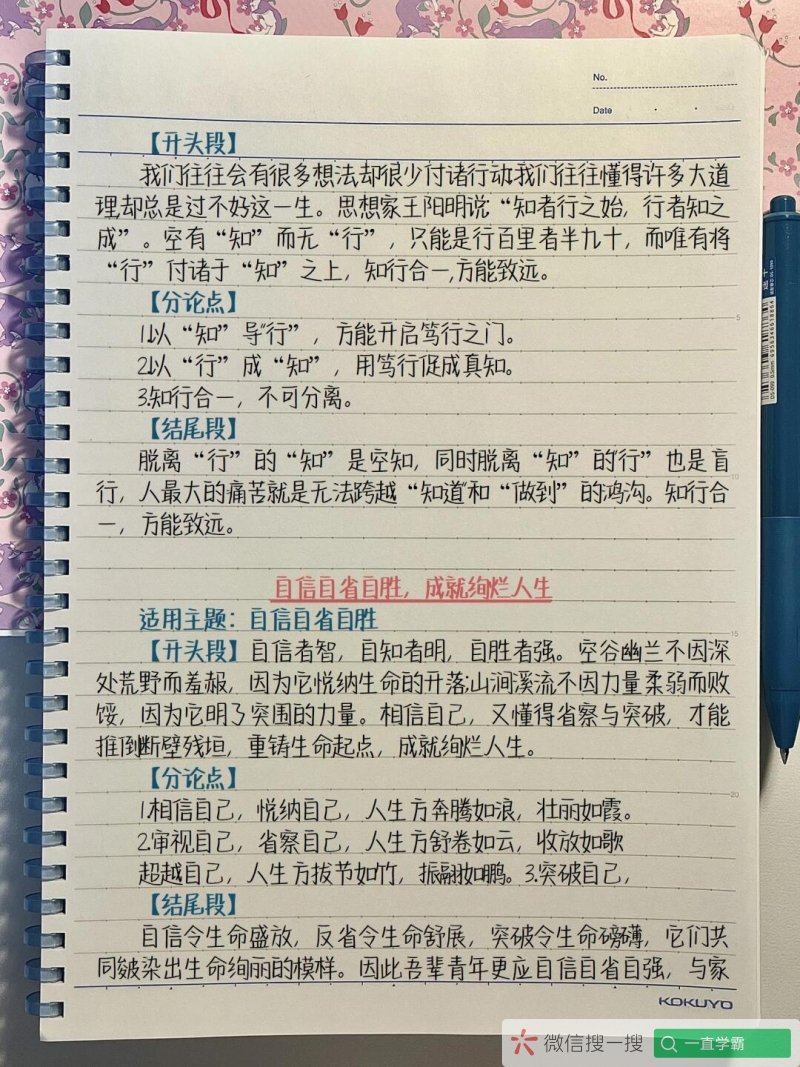 No.
Date
【开头段】
我们往往会有很多想法却很少付诸行动,我们往往懂得许多大道
理,却总是过不好这一生。思想家王阳明说“知者行之始,行者知之
成”。空有“知”而无“行”,只能是行百里者半九十,而唯有将
“行”付诸于“知”之上,知行合一,方能致远。
【分论点】
1.以“知”导“行”,方能开启笃行之门。
2.以“行”成“知”,用笃行促成真知。
3.知行合一,不可分离。
【结尾段】
脱离“行”的“知”是空知,同时脱离“知”的“行”也是盲
行,人最大的痛苦就是无法跨越“知道”和“做到”的鸿沟。知行合
一,方能致远。
自信自省自胜,成就绚烂人生
适用主题:自信自省自胜
【开头段】自信者智,自知者明,自胜者强。空谷幽兰不因深
处荒野而羞赧,因为它悦纳生命的开落;山涧溪流不因力量柔弱而败
馁,因为它明了突围的力量。相信自己,又懂得省察与突破,才能
推倒断壁残垣,重铸生命起点,成就绚烂人生。
【分论点】
1.相信自己,悦纳自己,人生方奔腾如浪,壮丽如霞。
2.审视自己,省察自己,人生方舒卷如云,收放如歌
超越自己,人生方拔节如竹,振翮如鹏。3.突破自己,
【结尾段】
自信令生命盛放,反省令生命舒展,突破令生命磅礴,它们共
同皴染出生命绚丽的模样。因此吾辈青年更应自信自省自强,与家
KOKUYO
5
10
15
20
微信搜一搜
一直学霸